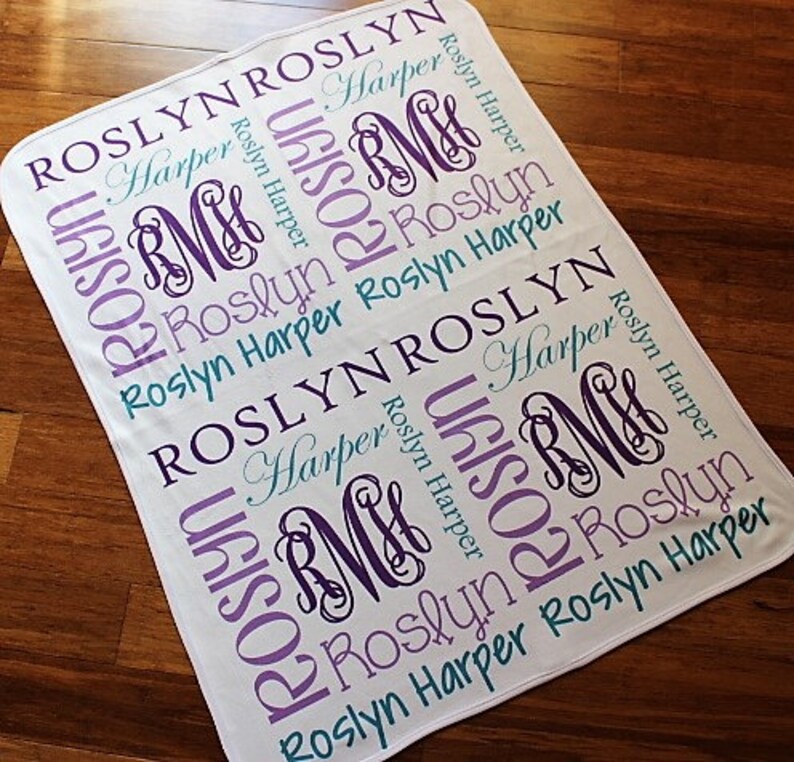 ROSLYN
Harper
Roslyn Harper
Roslyn
RMH
Roslyn
Roslyn Harper
ROSLYN
Harper
Roslyn Harper
Roslyn
RMH
Roslyn
Roslyn Harper
ROSLYN
Harper
Roslyn Harper
Roslyn
RMH
Roslyn
Roslyn Harper
ROSLYN
Harper
Roslyn Harper
Roslyn
RMH
Roslyn
Roslyn Harper